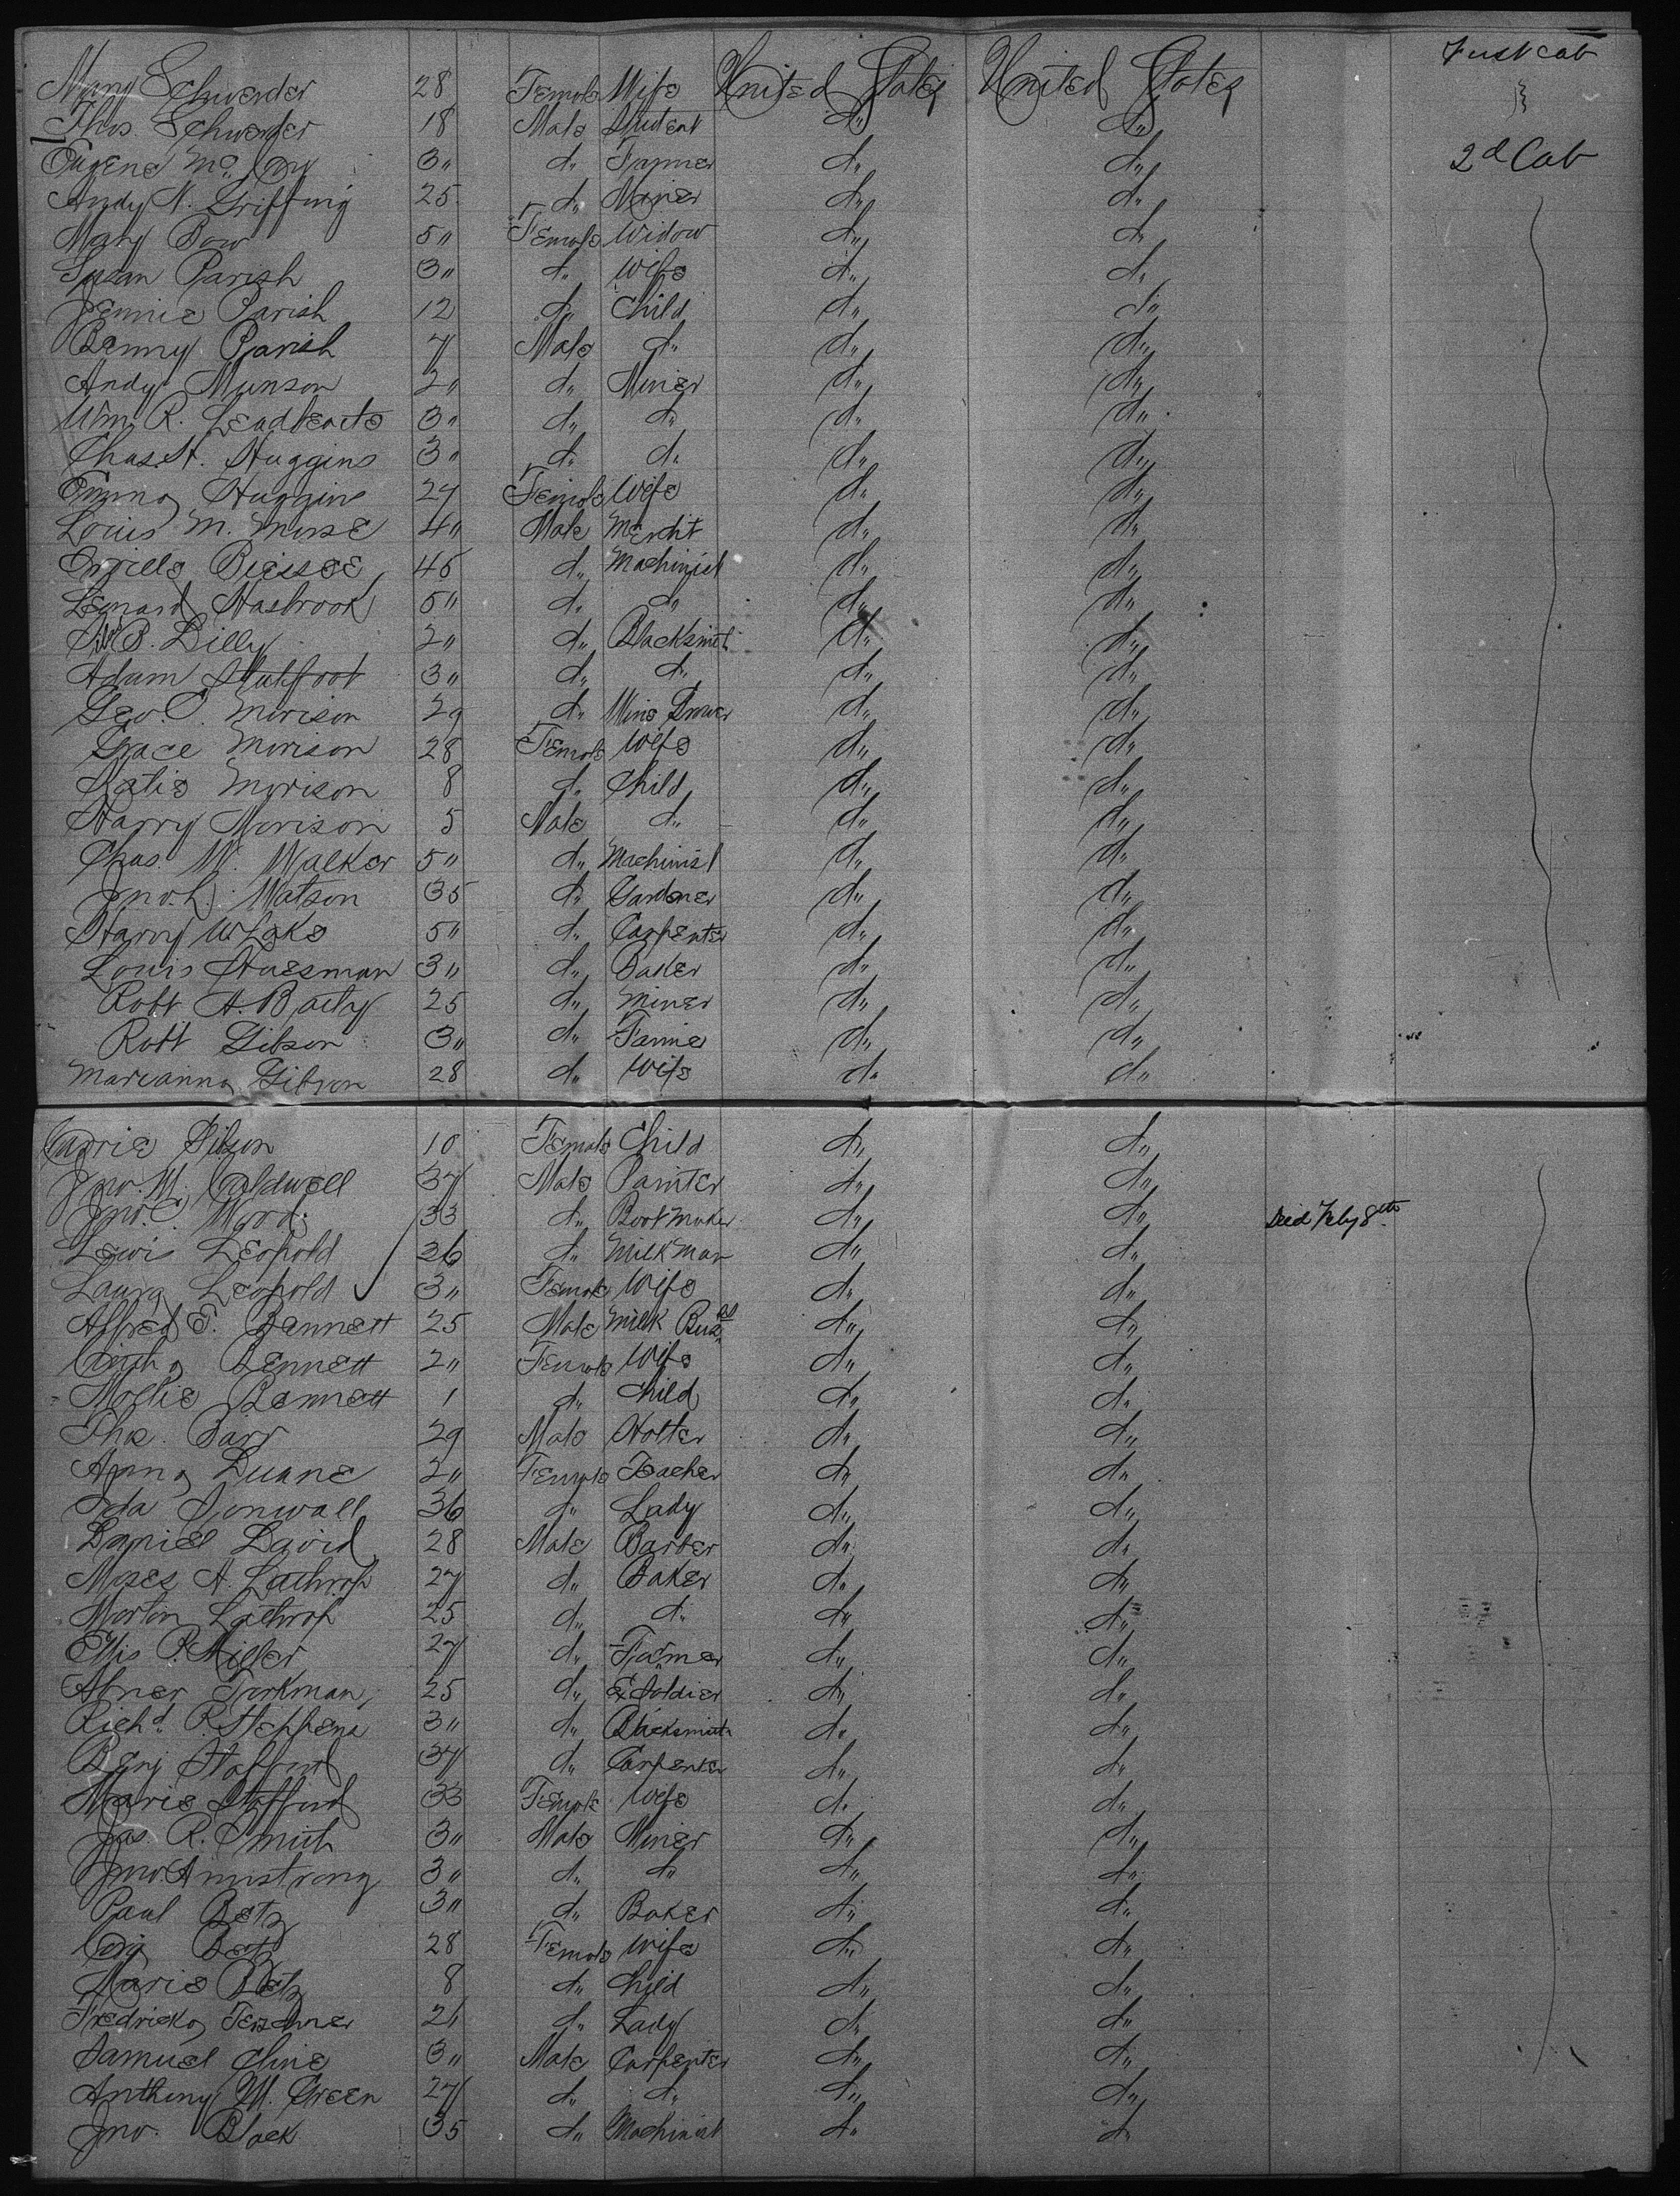 First Cab
Mary Schwerder 28 Female Wife United States United States
Thos. Schwerder 18 Male Student do,, do,,
Eugene Mc. Coy 3,, do,, Farmer do,, do,, 2d Cab
Andy N. Griffing 25 do,, Miner do,, do,,
Mary Bow 5,, Female Widow do,, do,,
Susan Parish 3,, do,, Wife do,, do,,
Jennie Parish 12 do,, Child do,, do,,
Benny Parish 7 Male do,, do,, do,,
Andy Munson 2,, do,, Miner do,, do,,
Wm. R. Leadbeate 3,, do,, do,, do,, do,,
Chas. H. Huggins 3,, do,, do,, do,, do,,
Emma Huggins 27 Female Wife do,, do,,
Louis M. Morse 4,, Male Mercht do,, do,,
Orville Bissee 45 do,, Machinist do,, do,,
Leonard Hasbrook 5,, do,, do,, do,, do,,
B. Lilly 2,, do,, Blacksmith do,, do,,
Adam Stuhfoot 3,, do,, do,, do,, do,,
Geo. C. Morison 29 do,, Wine Grower do,, do,,
Grace Morison 28 Female Wife do,, do,,
Katie Morison 8 do,, Child do,, do,,
Harry Morison 5 Male do,, do,, do,,
Chas. W. Walker 5,, do,, Machinist do,, do,,
Jno. L. Watson 35 do,, Gardener do,, do,,
Harry W Lake 5,, do,, Carpenter do,, do,,
Louis Huesman 3,, do,, Baker do,, do,,
Robt A. Baily 25 do,, Miner do,, do,,
Robt Gibson 3,, do,, Farmer do,, do,,
Marianna Gibson 28 do,, Wife do,, do,,
Carrie Gibson 10 Female Child do,, do,,
Jno. M. Caldwell 37 Male Painter do,, do,,
Jno. C. Wood 33 do,, Boot Maker do,, do,, Died Feby 8th
Lewis Leopold 36 do,, Milk Man do,, do,,
Laura Leopold 3,, Female Wife do,, do,,
Alfred E. Bennett 25 Male Milk Bus do,, do,,
Bennett 2,, Female Wife do,, do,,
Mollie Bennett 1 do,, Child do,, do,,
Thos. Barr 29 Male Hatter do,, do,,
Anna Duane 2,, Female Teacher do,, do,,
Ida Sonwall 36 do,, Lady do,, do,,
Daniel David 28 Male Barber do,, do,,
Moses A. Lathrop 27 do,, Baker do,, do,,
Morton Lathrop 25 do,, do,, do,, do,,
Ellis P. Miller 27 do,, Farmer do,, do,,
Abner Torkman 25 do,, Ex Soldier do,, do,,
Richd. P. Stephens 3,, do,, Blacksmith do,, do,,
Benj Stafford 37 do,, Carpenter do,, do,,
Marie Stafford 33 Female Wife do,, do,,
Jas. R. Smith 3,, Male Miner do,, do,,
Jno. Armstrong 3,, do,, do,, do,, do,,
Paul Betz 3,, do,, Baker do,, do,,
Betz 28 Female Wife do,, do,,
Marie Betz 8 do,, Child do,, do,,
Fredricka Terschner 21 do,, Lady do,, do,,
Samuel Cline 3,, Male Carpenter do,, do,,
Anthony M. Green 27 do,, do,, do,, do,,
Jno. Black 35 do,, Machinist do,, do,,